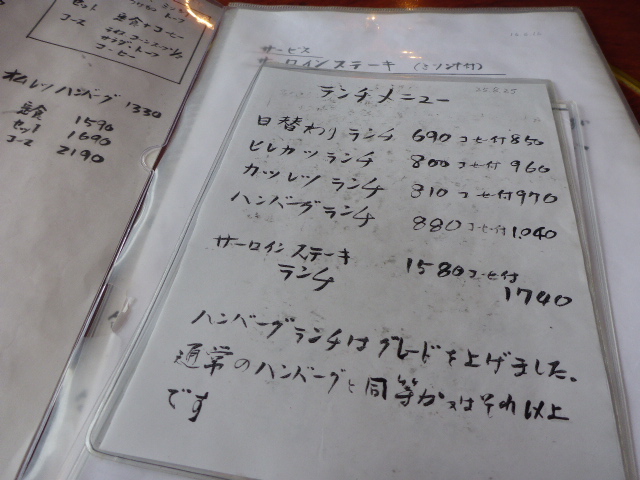 セット 定食+コーヒー
コース
コーヒー
オムレツハンバーグ 1330
定食 1590
セット 1690
コース 2190
サービス
サーロインステーキ
25.8.25
ランチメニュー
日替わりランチ 690 コーヒー付 850
ヒレカツランチ 800 コーヒー付 960
カツレツランチ 810 コーヒー付 970
ハンバーグランチ 880 コーヒー付 1,040
サーロインステーキ
ランチ 1580 コーヒー付
1740
ハンバーグランチはグレードを上げました。
通常のハンバーグと同等か又はそれ以上
です